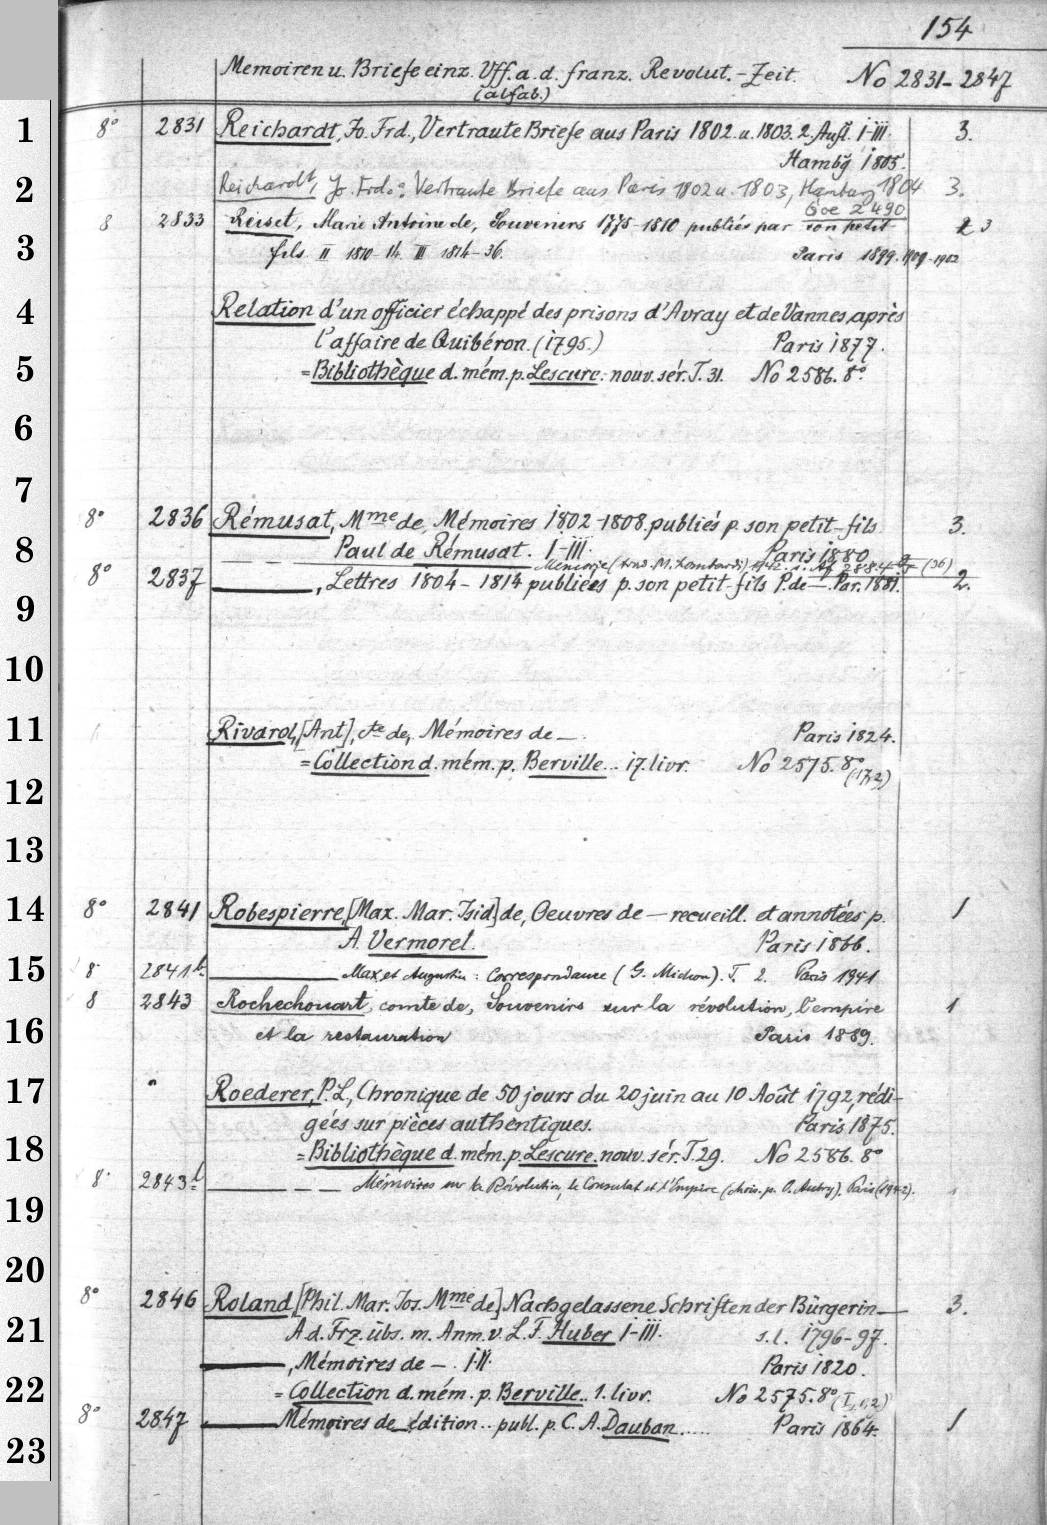 154
Memoiren u. Briefe einz. Vff. a. d. franz. Revolut.-Zeit. No 2831-2847
(alfab.)
1 8° 2831 Reichardt, Jo. Frd., Vertraute Briefe aus Paris 1802 u. 1803. 2. Aufl. I-III. 3.
Hambg 1805.
2 Reichardt, Jo. Frd.: Vertraute Briefe aus Paris 1802 u. 1803, Hamburg 1804 3.
Goe 2490
8 2833 Reiset, Marie Antoine de, Souvenirs 1775-1810 publiés par son petit- 3
3 fils II 1810-14. III 1814-36. Paris 1899. 1900-1902
4 Relation d'un officier échappé des prisons d'Avray et de Vannes, après
l'affaire de Quibéron. (1795.) Paris 1877.
5 =Bibliothèque d. mém. p. Lescure. nouv. sér. T. 31. No 2586. 8°.
6
7
8° 2836 Rémusat, Mme de, Mémoires 1802-1808. publiés p. son petit-fils 3.
8 Paul de Rémusat. I-III. Paris 1880
8° 2837 ——, Lettres 1804-1814 publiées p. son petit-fils P. de —. Par. 1881. 2.
9
10
11 Rivarol, [Ant], cte de, Mémoires de —. Paris 1824.
=Collection d. mém. p. Berville... 17. livr. No 2575. 8°
12 (17,2)
13
14 8° 2841 Robespierre, [Max. Mar. Isid] de, Oeuvres de — recueill. et annotées p. 1
A. Vermorel. Paris 1866.
15 8° 2841b —— Max et Augustin: Correspondance (G. Michon). T. 2. Paris 1941
8 2843 Rochechouart, comte de, Souvenirs sur la révolution, l'empire 1
16 et la restauration Paris 1889.
17 Roederer, P. L., Chronique de 50 jours du 20 juin au 10 Août 1792, rédi-
gées sur pièces authentiques. Paris 1875.
18 =Bibliothèque d. mém. p. Lescure. nouv. sér. T. 29. No 2586. 8°
8° 2843b —— — — Mémoires sur la Révolution, le Consulat et l'Empire (chois. p. O. Aubry). Paris (1942).
19
20
8° 2846 Roland, [Phil. Mar. Jos. Mme de] Nachgelassene Schriften der Bürgerin— 3.
21 A d. Frz. übs. m. Anm. v. L. F. Huber I-III. s. l. 1796-97.
——, Mémoires de —. I.II. Paris 1820.
22 =Collection d. mém. p. Berville.. 1. livr. No 2575. 8° (I,1,2)
8° 2847 —— Mémoires de — édition.. publ. p. C. A. Dauban..... Paris 1864. 1
23